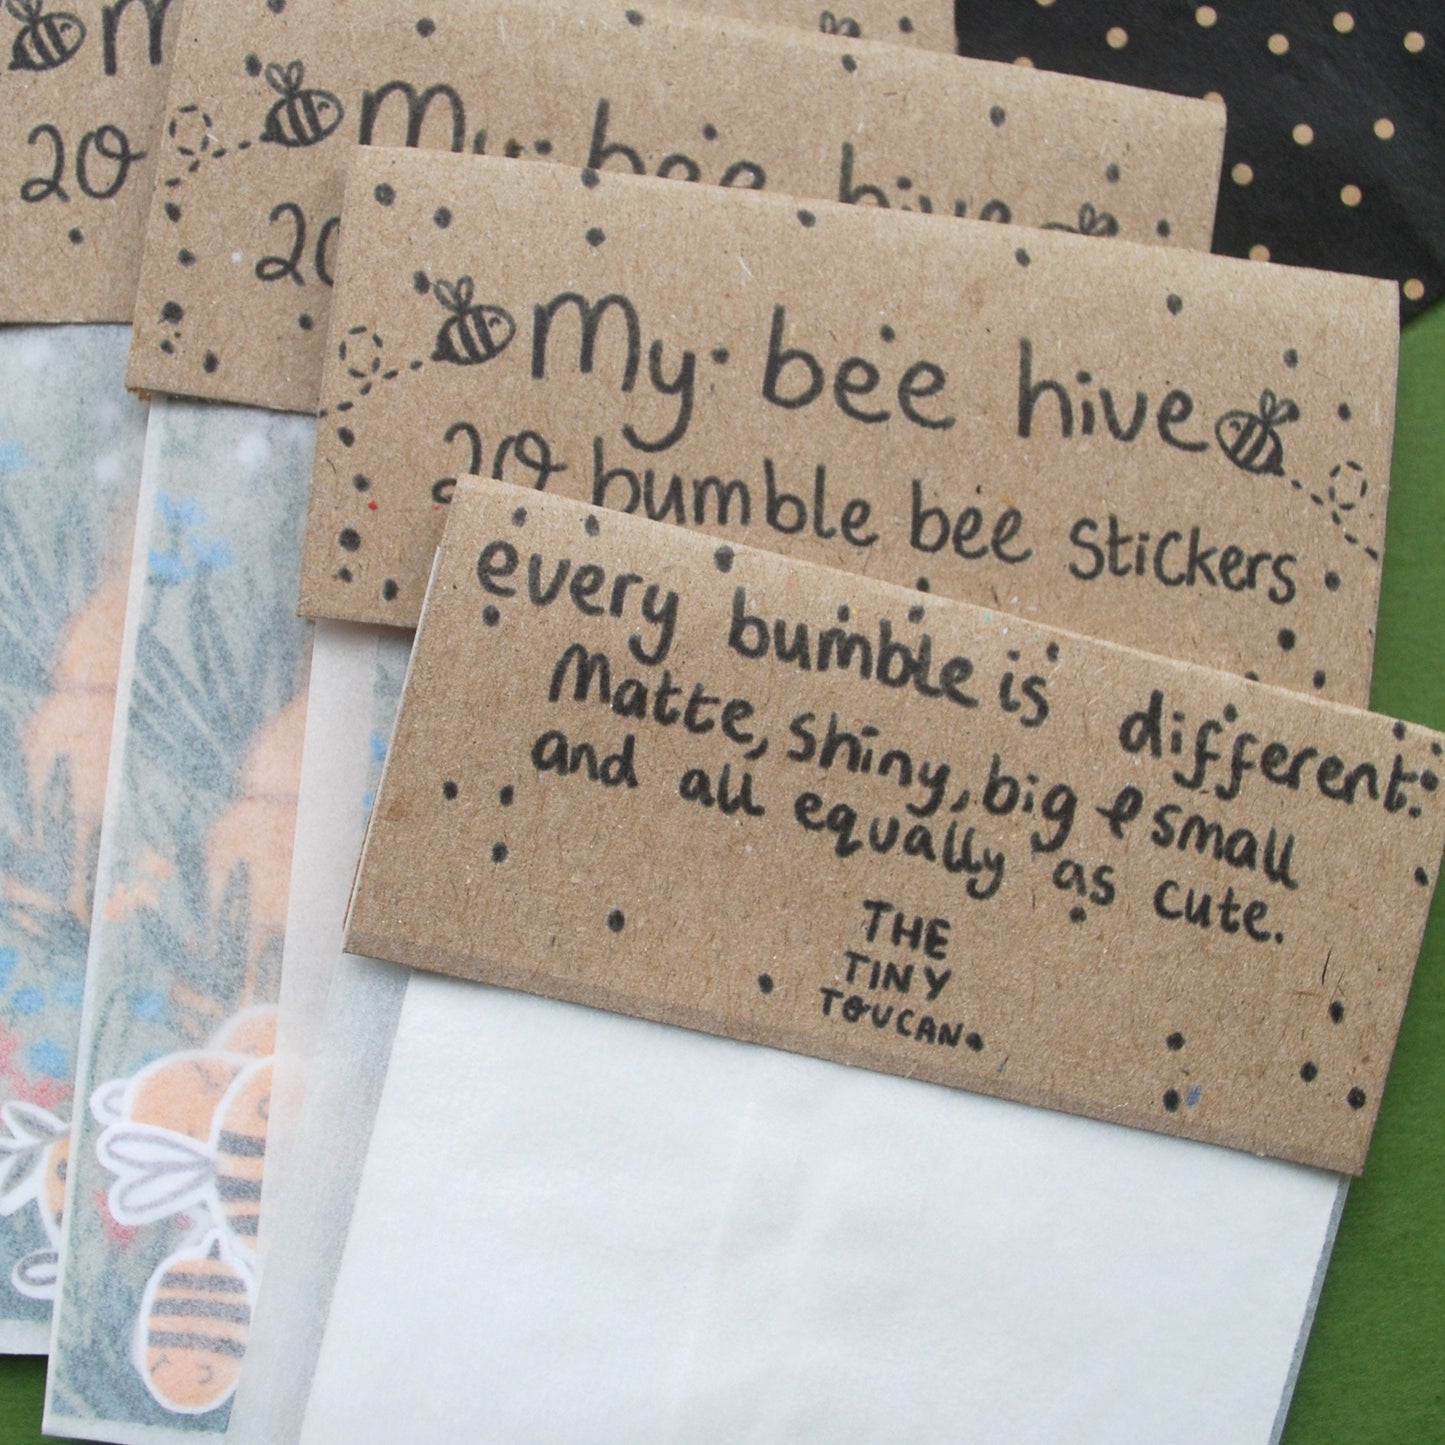 m
20
My bee hive
20
My bee hive
20 bumble bee stickers
every bumble is different.
Matte, shiny, big & small
and all equally as cute.
THE
TINY
TOUCAN.